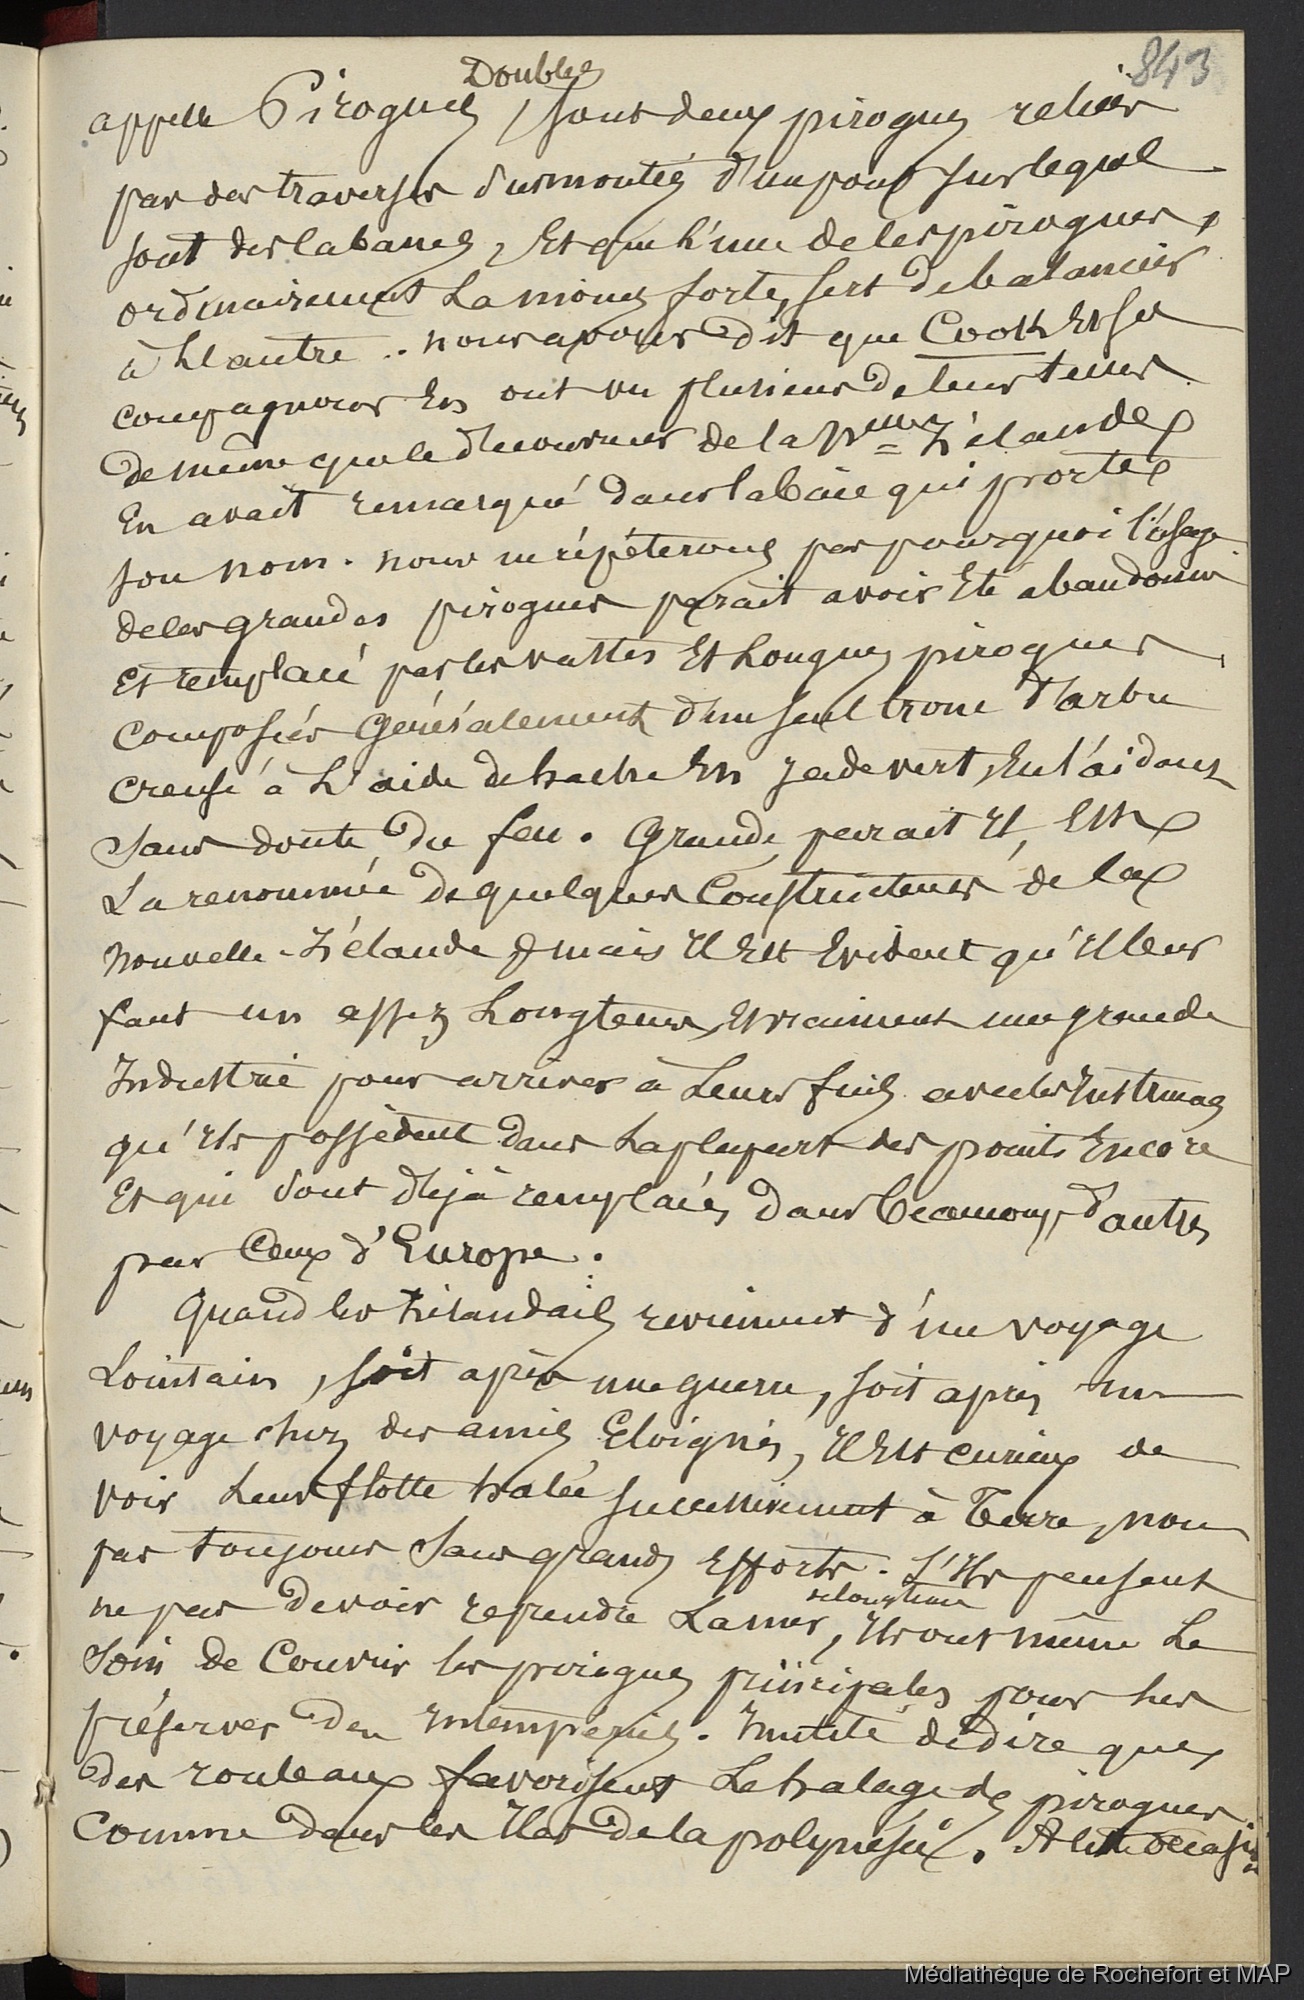 843
Doubles
appelle Pirogues, sont deux pirogues reliées
par des traverses surmontées d'un pont sur lequel
sont des cabanes, et que l'une de ces pirogues,
ordinairement la moins forte, sert de balancier
à l'autre .. nous avons dit que Cook et ses
compagnons en ont vu plusieurs de leur tems
de même que le découvreur de la Nlle Zélande
en avait remarqué dans la baie qui porte
son nom. nous ne répéterons pas pourquoi l'usage
de les grandes pirogues parait avoir été abandonné
et remplacé par les vastes et longues pirogues
composées généralement d'un seul tronc d'arbre
creusé à l'aide de hache en jade vert, en l'aidant
sans doute du feu. Grande, parait il, est
la renommée de quelques constructeurs de la
nouvelle-Zélande & mais il est évident qu'il leur
faut un assez longtems, et vraiment une grande
industrie pour arriver à leurs fins avec les instrumens
qu'ils possèdent dans la plupart des points encore
et qui sont déjà remplacés dans beaucoup d'autres
par ceux d'Europe.
Quand les Zélandais reviennent d'un voyage
lointain, soit après une guerre, soit après un
voyage chez des amis éloignés, il est curieux de
voir leur flotte halée successivement à terre, non
pas toujours sans grands efforts. S'ils pensent
ne pas devoir reprendre la mer, ils ont même le
soin de couvrir les pirogues principales pour les
préserver des intempéries. Inutile de dire que
des rouleaux favorisent le halage des pirogues
comme dans les îles de la polynésie. A cette occasion
Médiathèque de Rochefort et MAP